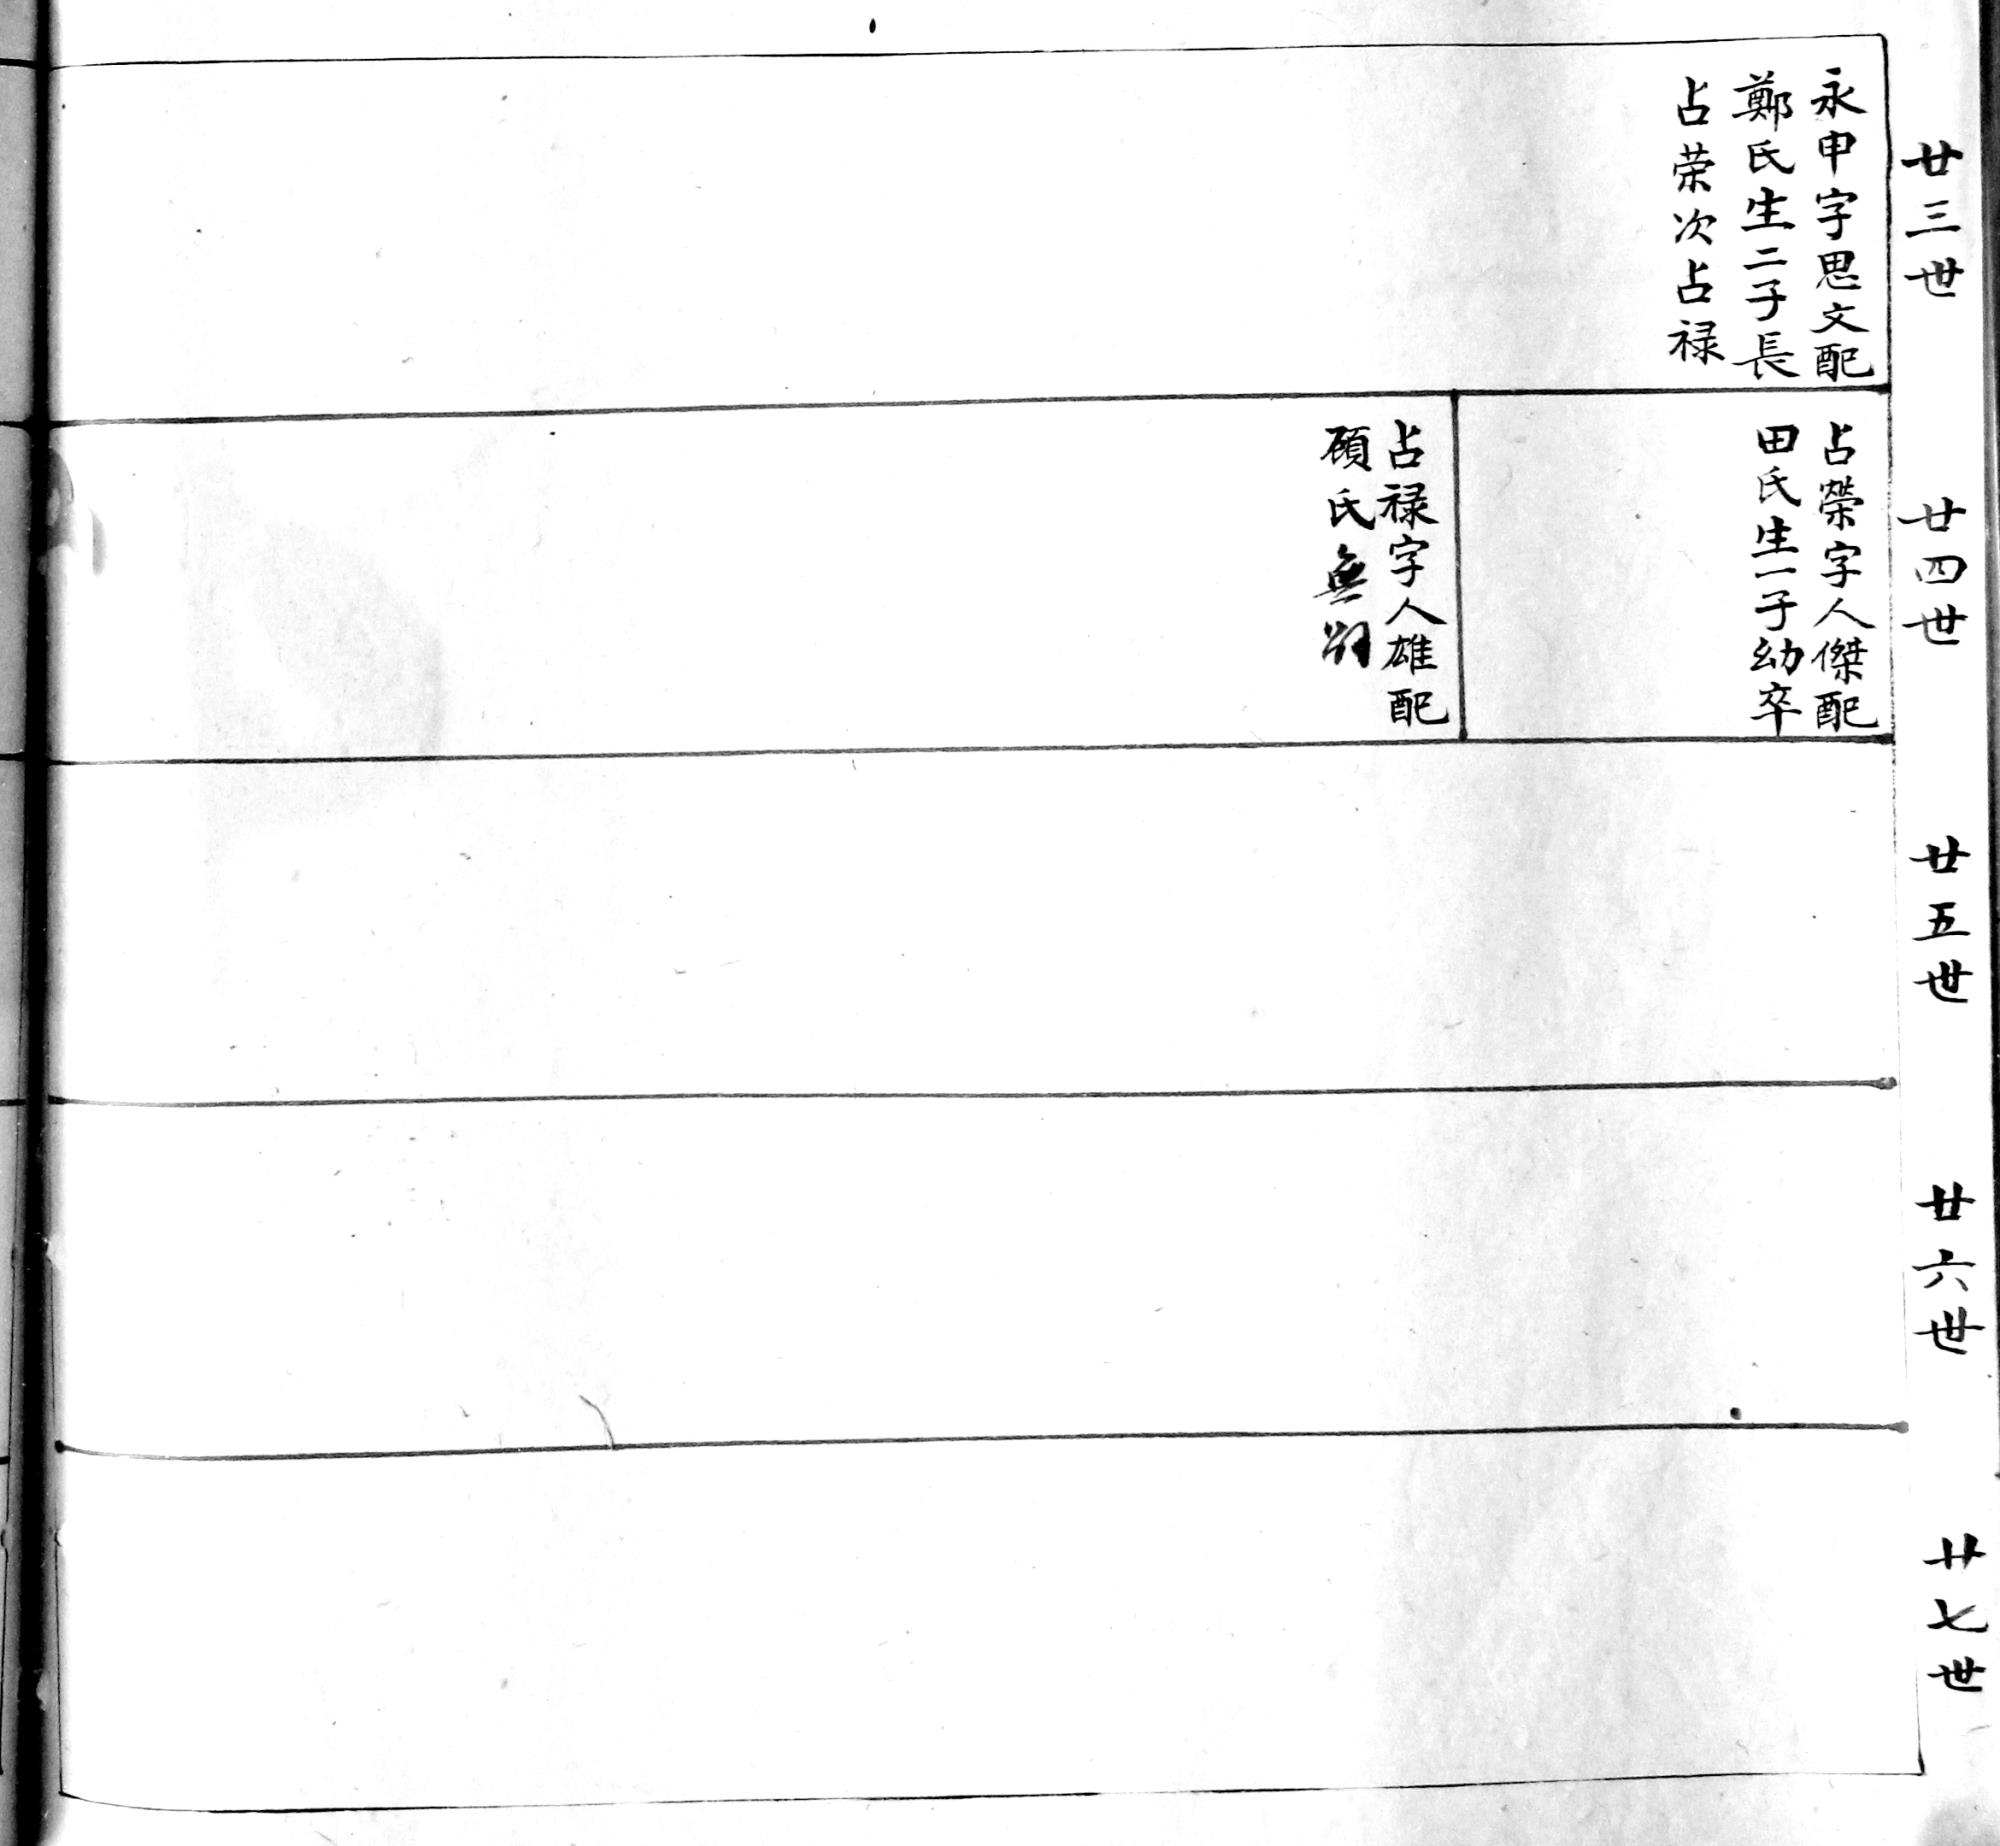 廿三世
永申字思文配
鄭氏生二子長
占荣次占禄
廿四世
占榮字人傑配
田氏生一子幼卒
占禄字人雄配
顾氏無
廿五世
廿六世
廿七世